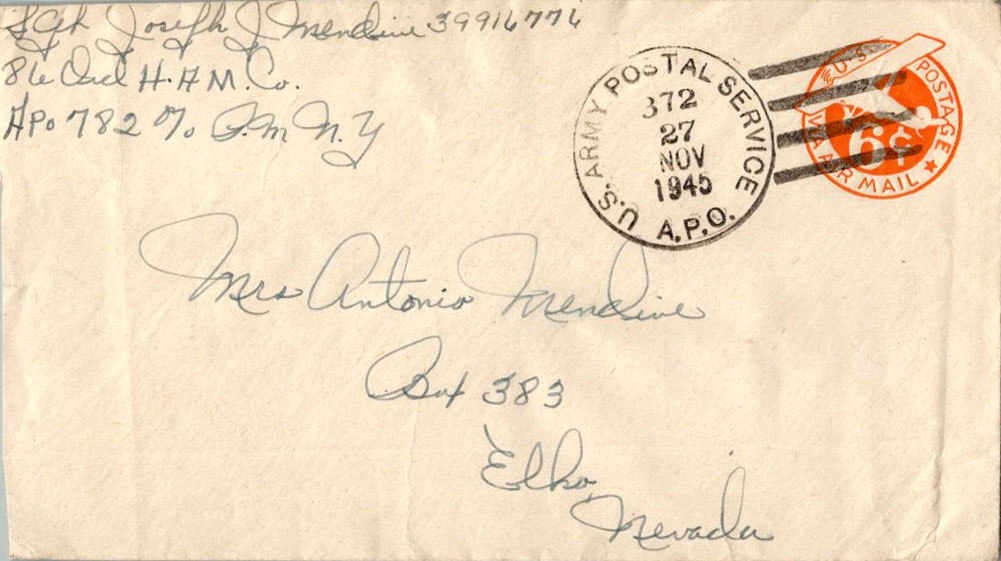 Sgt Joseph J Mendive 39916776
86 Ord H.A M. Co.
APO 782 c/o P.M N.Y
U.S. ARMY POSTAL SERVICE
372
27
NOV
1945
A.P.O.
U.S. POSTAGE
6¢
VIA AIR MAIL
Mrs Antonio Mendive
Box 383
Elko,
Nevada